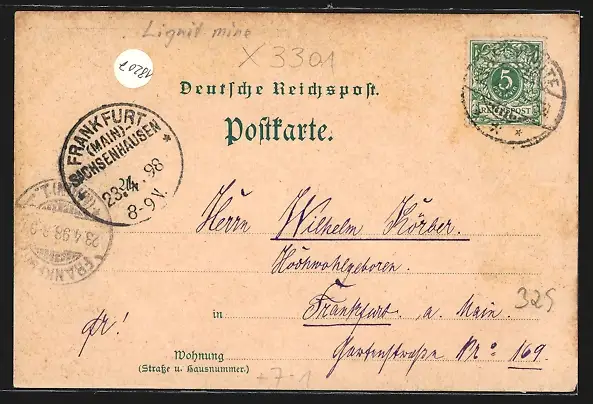 Lignit mine
X 3301
18207
Deutsche Reichspost.
Postkarte.
5
REICHSPOST
FRANKFURT
(MAIN)-
SACHSENHAUSEN
23 4 98
8-9 V.
23.4.98.
Herrn Wilhelm Körber.
Hochwohlgeboren.
325
in Frankfurt a. Main.
fr!
Wohnung
(Straße u. Hausnummer.)
Gartenstraße Nro 169.